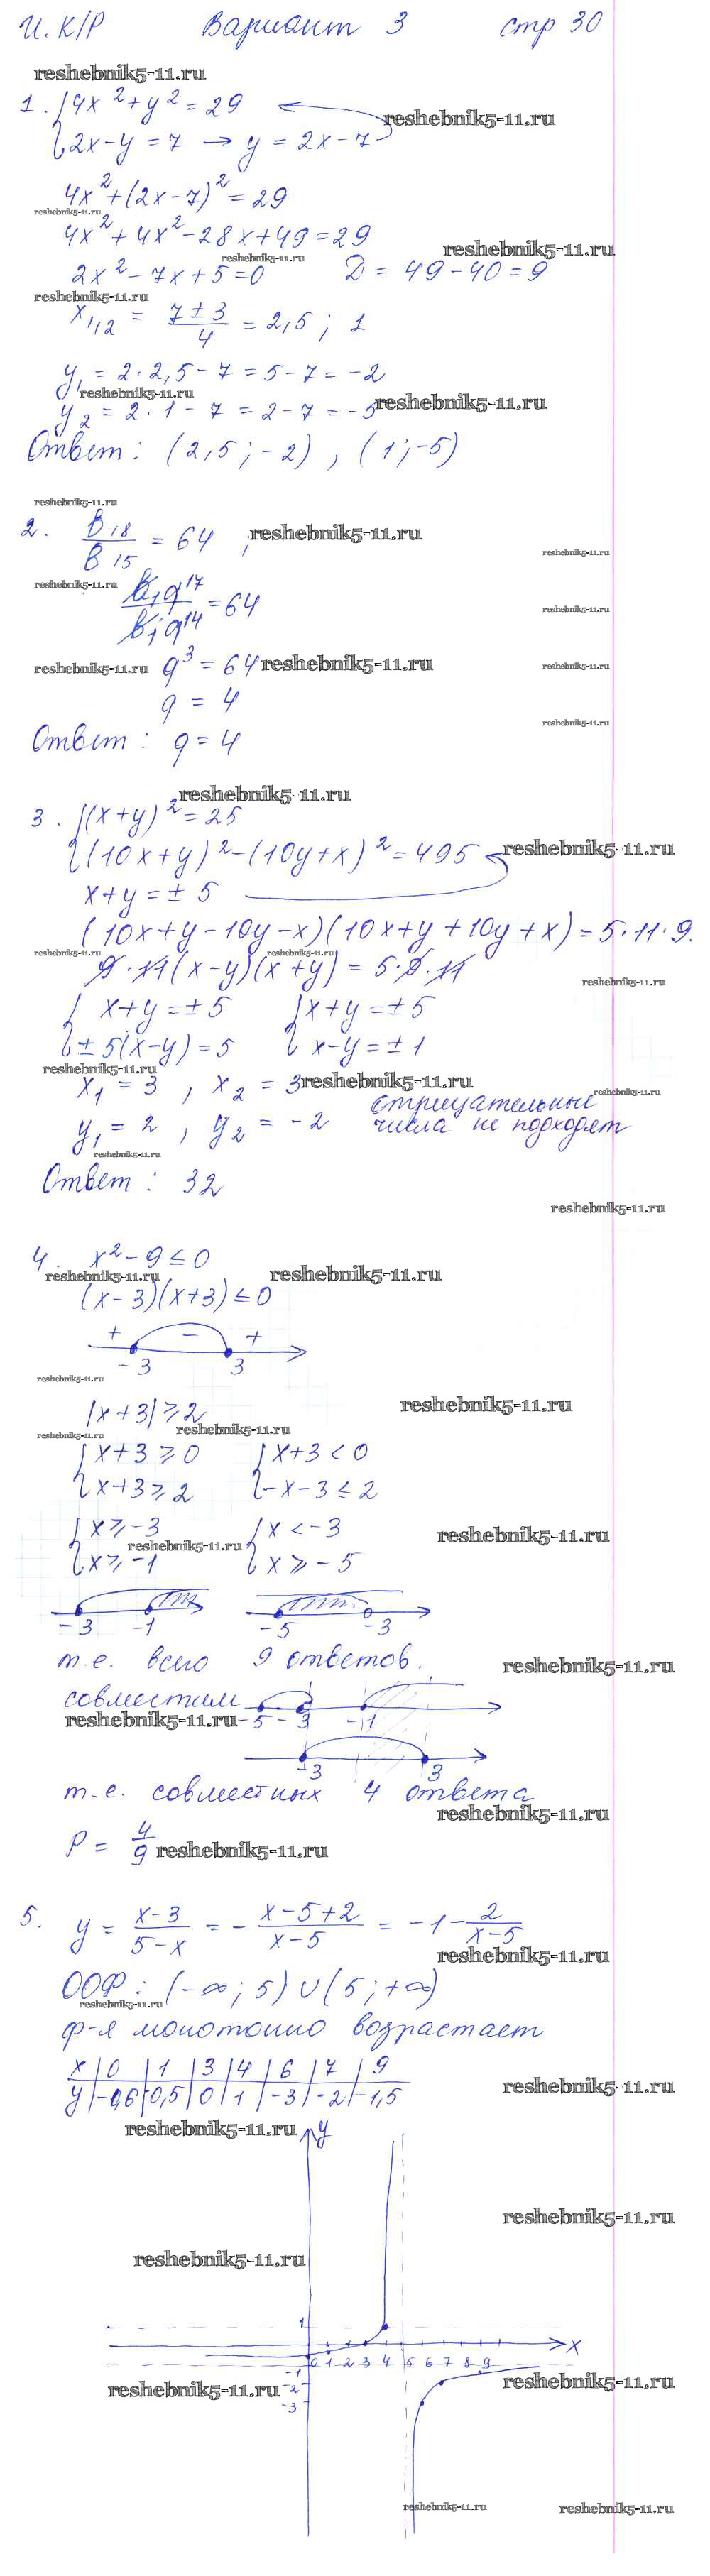 И. К/Р Вариант 3 стр 30
reshebnik5-11.ru
1. {4x² + y² = 29
reshebnik5-11.ru
{2x - y = 7 → y = 2x - 7
4x² + (2x - 7)² = 29
reshebnik5-11.ru
4x² + 4x² - 28x + 49 = 29
reshebnik5-11.ru reshebnik5-11.ru
2x² - 7x + 5 = 0 D = 49 - 40 = 9
reshebnik5-11.ru
x₁,₂ = (7 ± 3)/4 = 2,5 ; 1
y₁ = 2 · 2,5 - 7 = 5 - 7 = -2
reshebnik5-11.ru reshebnik5-11.ru
y₂ = 2 · 1 - 7 = 2 - 7 = -5
Ответ: (2,5 ; -2) , (1 ; -5)
reshebnik5-11.ru
2. B₁₈/B₁₅ = 64 ; reshebnik5-11.ru
reshebnik5-11.ru
reshebnik5-11.ru
B₁q¹⁷/B₁q¹⁴ = 64
reshebnik5-11.ru
reshebnik5-11.ru q³ = 64 reshebnik5-11.ru reshebnik5-11.ru
q = 4
reshebnik5-11.ru
Ответ: q = 4
reshebnik5-11.ru
3. {(x + y)² = 25
{(10x + y)² - (10y + x)² = 495 reshebnik5-11.ru
x + y = ± 5
(10x + y - 10y - x)(10x + y + 10y + x) = 5 · 11 · 9.
reshebnik5-11.ru reshebnik5-11.ru
9 · 11(x - y)(x + y) = 5 · 9 · 11
reshebnik5-11.ru
{x + y = ± 5 {x + y = ± 5
{± 5(x - y) = 5 {x - y = ± 1
reshebnik5-11.ru reshebnik5-11.ru
x₁ = 3 , x₂ = 3
reshebnik5-11.ru
отрицательные
y₁ = 2 , y₂ = -2 числа не подходят
reshebnik5-11.ru
Ответ: 32
reshebnik5-11.ru
4. x² - 9 ≤ 0
reshebnik5-11.ru reshebnik5-11.ru
(x - 3)(x + 3) ≤ 0
+ - +
-3 3
reshebnik5-11.ru
|x + 3| ≥ 2 reshebnik5-11.ru
reshebnik5-11.ru reshebnik5-11.ru
{x + 3 ≥ 0 {x + 3 < 0
{x + 3 ≥ 2 {-x - 3 ≤ 2
{x ≥ -3 {x < -3
reshebnik5-11.ru reshebnik5-11.ru
{x ≥ -1 {x ≥ -5
-3 -1 -5 -3
т.е. всего 9 ответов.
reshebnik5-11.ru
совместим
reshebnik5-11.ru -5 -3 -1
-3 3
т.е. совместных 4 ответа
reshebnik5-11.ru
P = 4/9 reshebnik5-11.ru
5. y = (x-3)/(5-x) = - (x-5+2)/(x-5) = -1 - 2/(x-5)
reshebnik5-11.ru
ООФ: (-∞; 5) ∪ (5; +∞)
reshebnik5-11.ru
ф-я монотонно возрастает
x | 0 | 1 | 3 | 4 | 6 | 7 | 9
y | -0,6 | -0,5 | 0 | 1 | -3 | -2 | -1,5
reshebnik5-11.ru
reshebnik5-11.ru y
reshebnik5-11.ru
reshebnik5-11.ru
1
x
0 1 2 3 4 5 6 7 8 9
-1
reshebnik5-11.ru -2 reshebnik5-11.ru
-3
reshebnik5-11.ru reshebnik5-11.ru